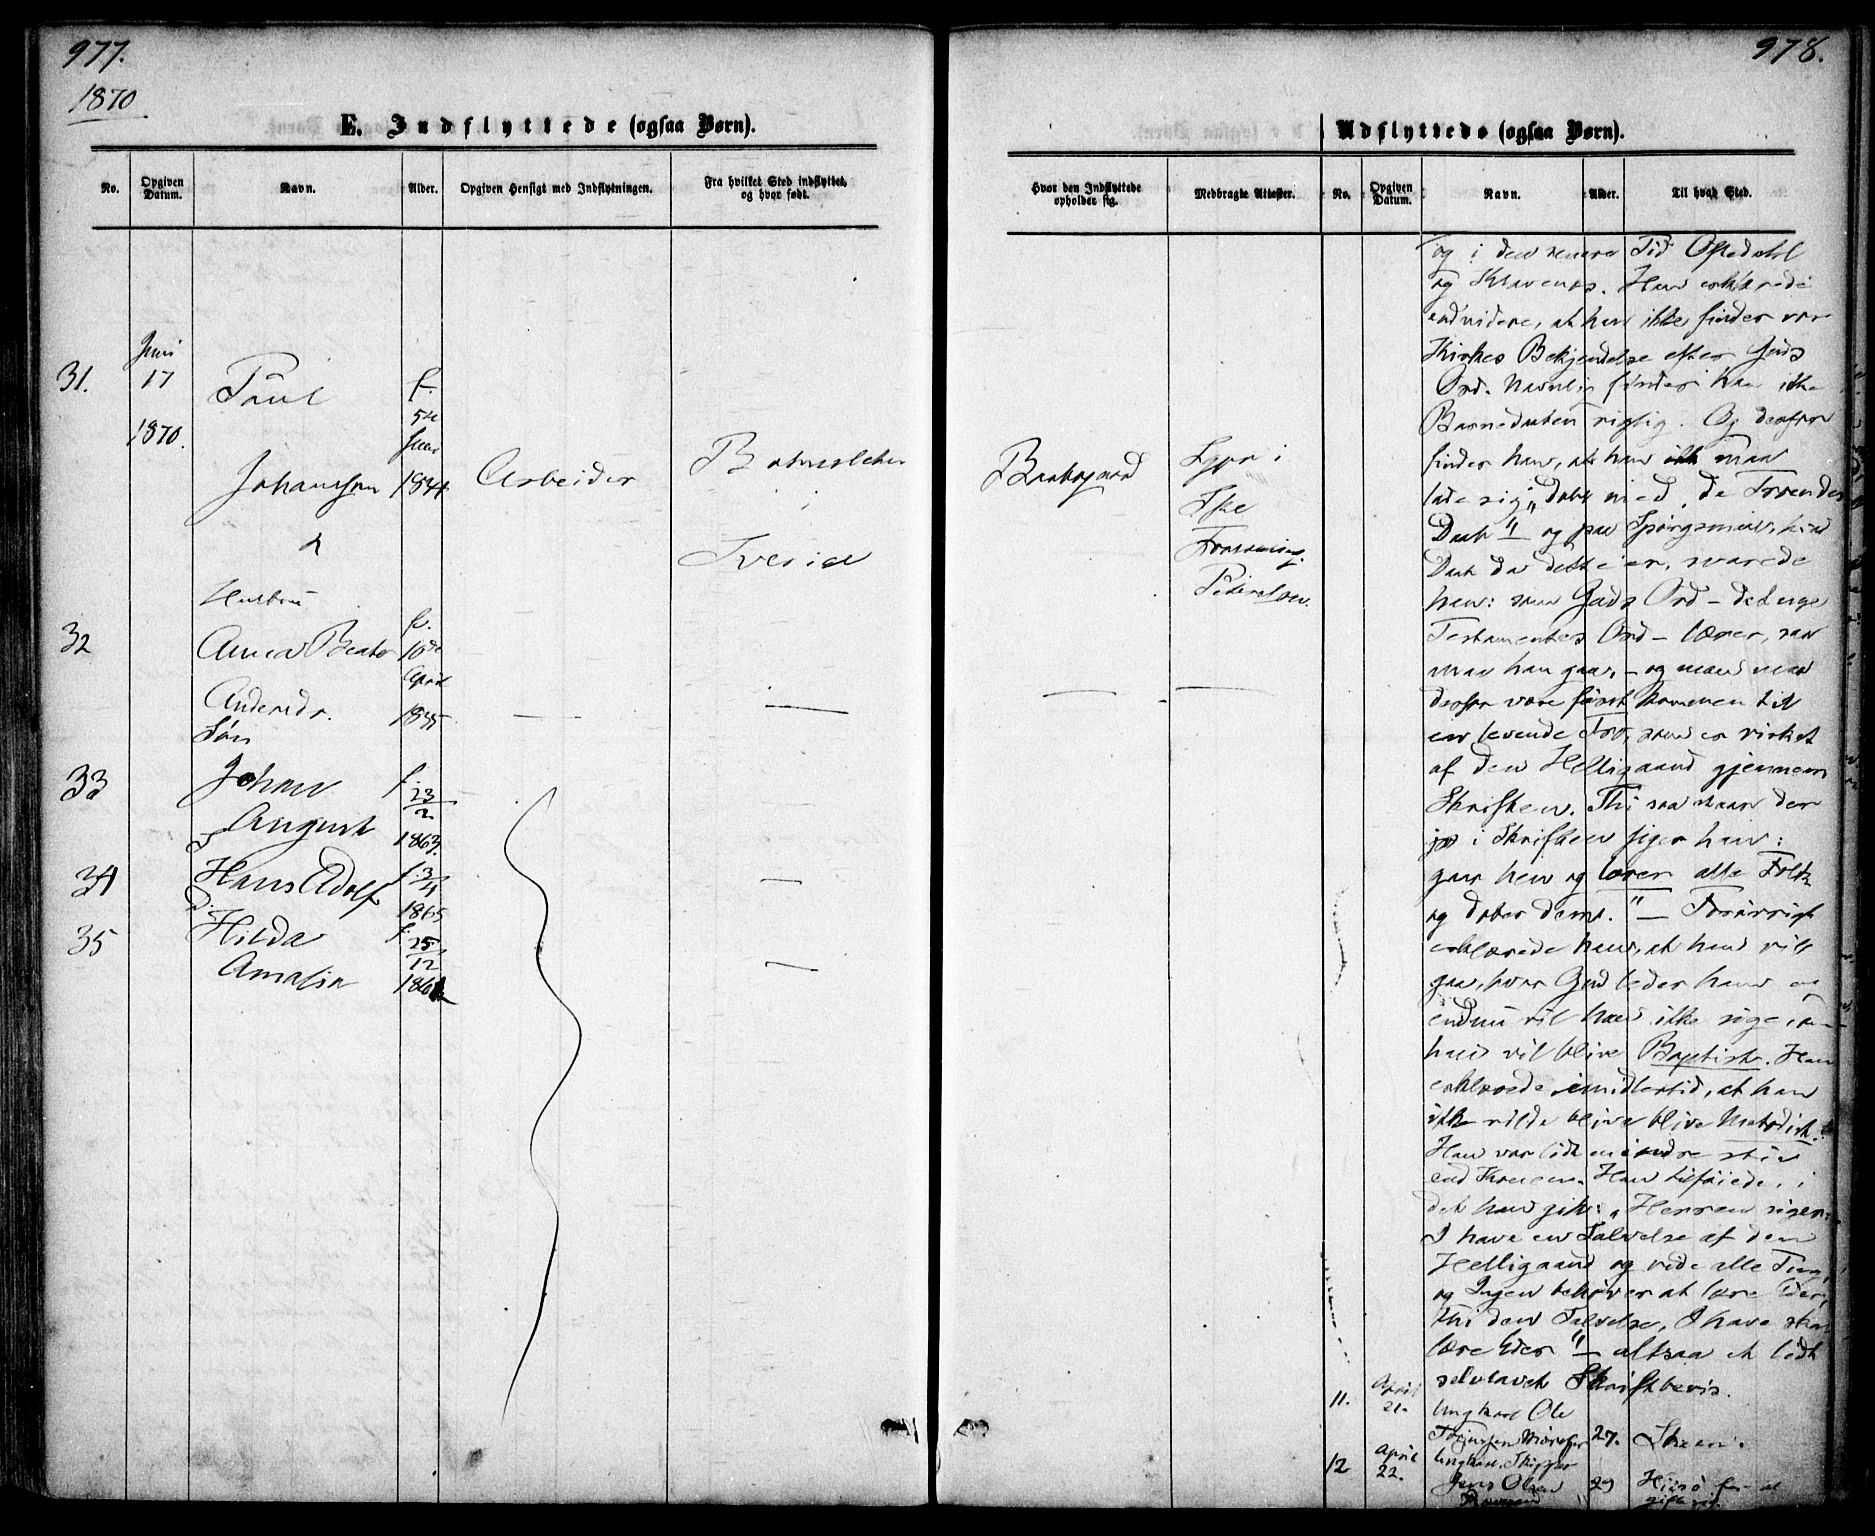 977.
1870
E. Indflyttede (ogsaa Børn).
No.
Opgiven Datum.
Navn.
Alder.
Opgiven Hensigt med Indflytningen.
Fra hvilket Sted indflyttet, og hvor født.
31.
Juni
17
1870.
Paul
Johansson
f.
5te
1834
Arbeider
Sverige
Hustru
32
Anna Beate
Andersdr.
f.
10de
April
1835
Søn
33
Johan
August
f. 23/2
1863.
S.
34
Hans Adolf
f. 3/4
1865
D.
35
Hilda
Amalia
f. 25/12
978.
Hvor den Indflyttede opholder sig.
Medbragte Attester.
Udflyttede (ogsaa Børn).
No.
Opgiven Datum.
Navn.
Alder.
Til hvad Sted.
og i den senere Tid Oftedahl
og Han erklærede
endvidere, at han ikke finder vor
Kirkes Bekjendelse efter Guds
Ord. Navnlig finder han ikke
Barnedaaben rigtig. Og derfor
finder han, at han maa
lade sig døbe med "de Troendes
Daab" og paa Spørgsmaal, hvad
Daab da dette er, svarede
han: som Guds Ord – det nye
Testamentes Ord – lærer, saa
maa han gaa, – og mand maa
derfor være først kommen til
en levende Tro, som er virket
af den Helligaand gjennem
Skriften. Thi saa staar der
jo i Skriften siger han:
gaar hen og lærer alle Folk
og døber dem." – Forøvrigt
erklærede han, at han vil
gaa, hvor Gud leder ham og
endnu vil han ikke sige, om
han vil blive Baptist. Han
erklærede imidlertid, at han
ikke vilde blive blive Methodist.
Han var lidt mindre stiv
end Konen. Han tilføiede, i
det han gik: "Herren siger:
I have en Salvelse af den
Helligaand og vide alle Ting,
og Ingen behøver at lære Eder,
thi den Salvelse, I have skal
lære Eder" – altsaa et lidt
selvlavet Skriftbevis.
11.
April
21.
Ungkarl Ole
27.
Skien.
12
April
22.
Ungkarl, Skipper
Jens Olsen
29
Hisø for at
gifte sig.